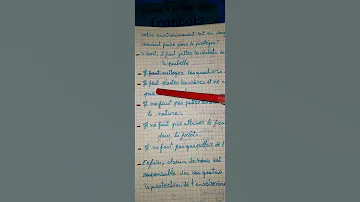 Français
notre environnement est en dan
comment faire pour le protéger
D'abord, il faut jetter les
la poubelle
- Il faut nettoyer les quartiers
- Il faut planter les arbres et ne
pas
- Il ne faut pas
la nature.
- Il ne faut pas allumer le feu
dans la forêt.
- Il ne faut pas gaspiller de l'
- Enfin, chacun de nous est
responsable
la protection de l'environneme